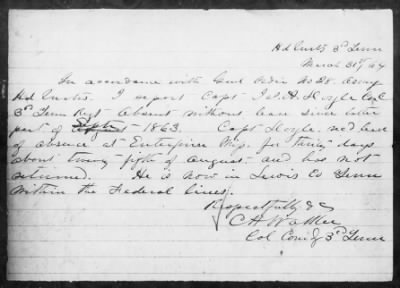 Hd Qurts 3d Tenn
March 31st / 64
In accordance with Genl Order No 28. Army
Hd Qurters. I report Capt J. W. A. Hoyle Co C
3d Tenn Regt Absent without leave since later
part of August 1863. Capt Hoyle. rec'd leave
of absence at Enterprise Miss. for thirty days
about twenty fifth of August and has not
returned. He is now in Lewis Co Tenn
within the Federal lines.
Respectfully &c
C. H. Walker
Col Comdg 3d Tenn